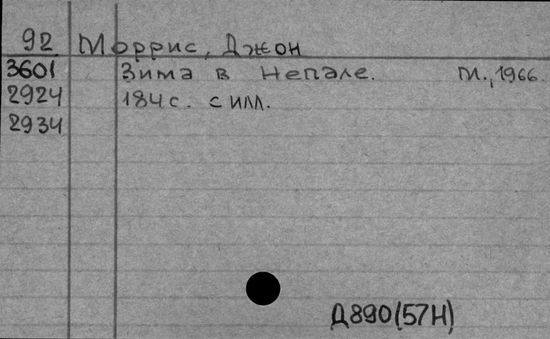 92 Моррис, Джон
3601 Зима в Непале. М., 1966.
2924 184 с. с илл.
2934
Д890(57Н)